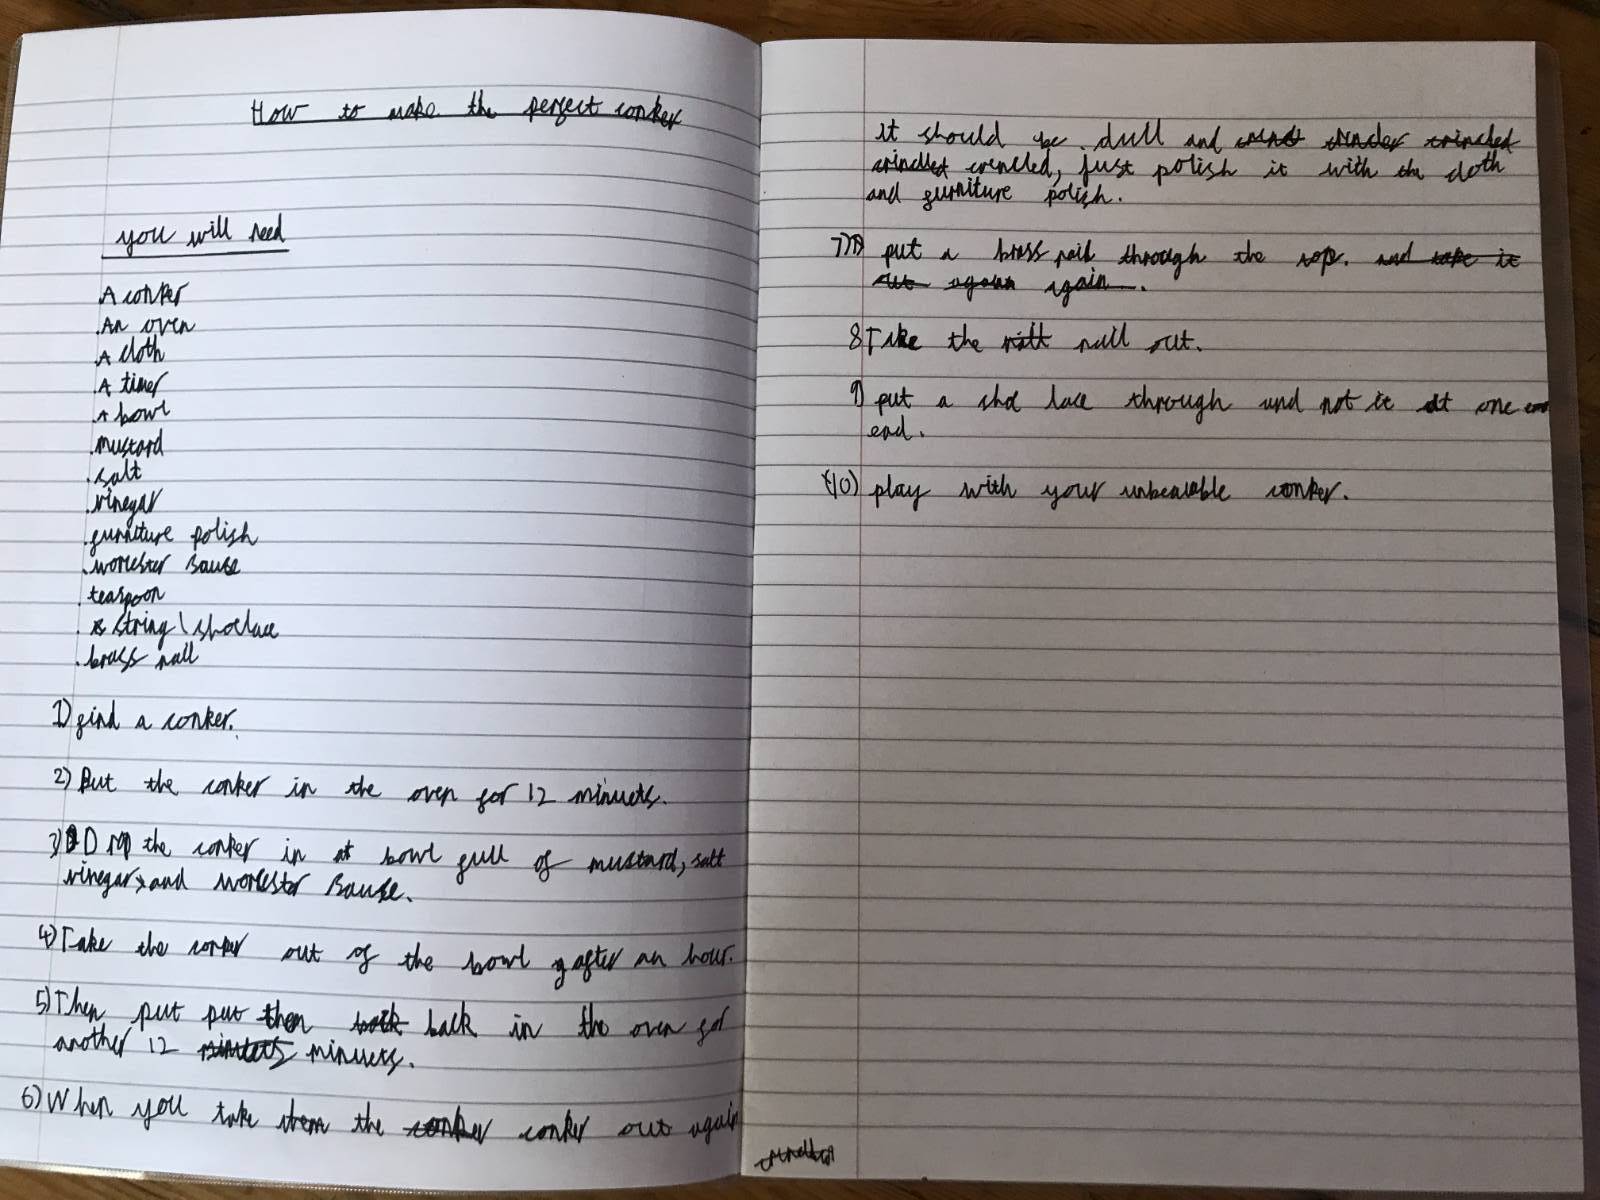 How to make the perfect conker
you will need
A conker
.An oven
.A cloth
.A timer
.A bowl
.mustard
.salt
.vinegar
.furniture polish
.worcester Sause
.teaspoon
. string \ shoelace
.brass nail
1) find a conker.
2) But the conker in the oven for 12 minuets.
3) Drop the conker in a bowl full of mustard, salt
vinegar, and worcester Sause.
4) Take the conker out of the bowl after an hour.
5) Then put put then back in the oven for
another 12 minuets minuets.
6) When you take them the conker conker out again
it should be dull and crincled
crincled, just polish it with the cloth
and furniture polish.
7) put a brass nail through the top. and take it
out again again.
8 Take the nail out.
9) put a shoe lace through and not it at one
end.
10) play with your unbeatable conker.